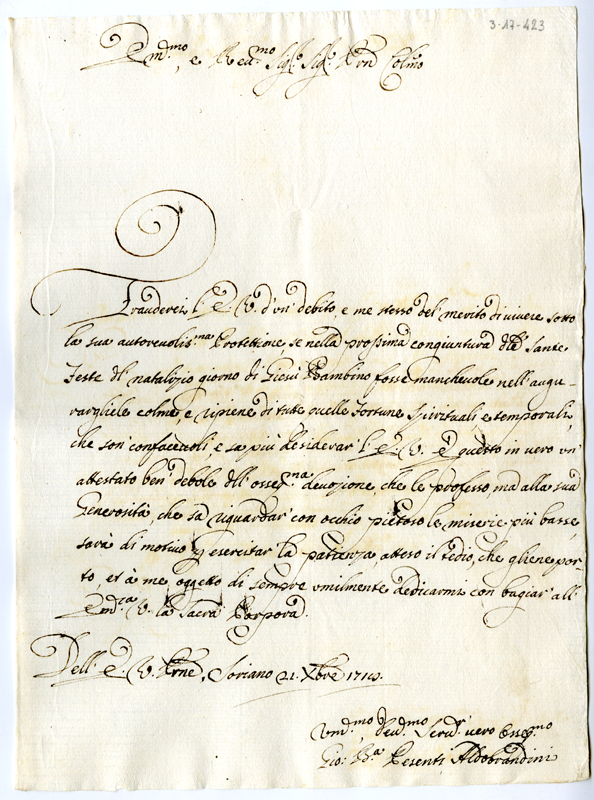 3-17-423
Em.mo, e Reu.mo Sig.re Sig.re Prn Colmo
Frauderei l'E. V. d'un' debito, e me stesso del' merito di vivere sotto
la sua autoreuolis.ma Protettione, se nella prossima congiuntura dlle Sante
Feste dl' natalizio giorno di Giesù Bambino fosse mancheuole nell'augu-
rargliele colme, e ripiene di tutte quelle Fortune Spirituali e temporali,
che son' confaceuoli, e sa più desiderar' l'E. V. È questo in uero un'
attestato ben' debole dll' osseq.ma deuozione, che le professo, ma alla sua
Generosità, che sa riguardar' con occhio pietoso le miserie più basse,
sarà di motiuo esercitar' la patienza, atteso il tedio, che gliene por-
to, et à me oggetto di sempre umilmente dedicarmi con bagiar' all'
Em.za V. la Sacra Porpora.
Dell' E. V. Prne, Soriano 21. Xbre
Um.mo Deu.mo Seru.r uero Osseq.mo
Gio: Ba. Pesenti Aldobrandini